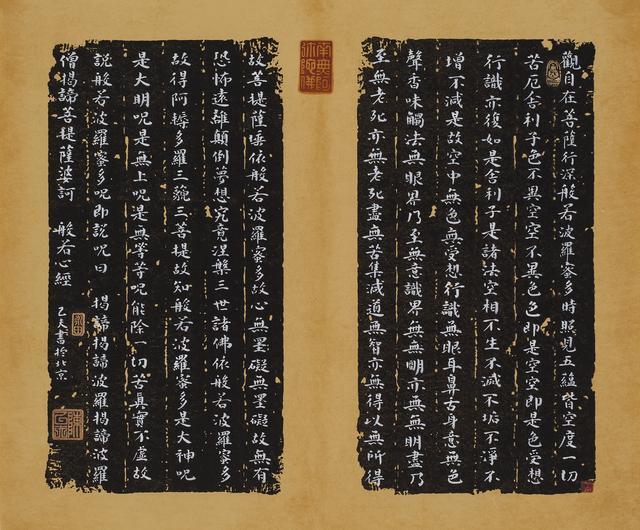 觀自在菩薩行深般若波羅蜜多時照見五蘊皆空度一切
苦厄舍利子色不異空空不異色色即是空空即是色受想
行識亦復如是舍利子是諸法空相不生不滅不垢不淨不
增不減是故空中無色無受想行識無眼耳鼻舌身意無色
聲香味觸法無眼界乃至無意識界無無明亦無無明盡乃
至無老死亦無老死盡無苦集滅道無智亦無得以無所得
南無阿弥陀佛
故菩提薩埵依般若波羅蜜多故心無罣礙無罣礙故無有
恐怖遠離顛倒夢想究竟涅槃三世諸佛依般若波羅蜜多
故得阿耨多羅三藐三菩提故知般若波羅蜜多是大神呪
是大明呪是無上呪是無等等呪能除一切苦真實不虛故
說般若波羅蜜多呪即說呪曰 揭諦揭諦波羅揭諦波羅
僧揭諦菩提薩婆訶 般若心經 書於北京